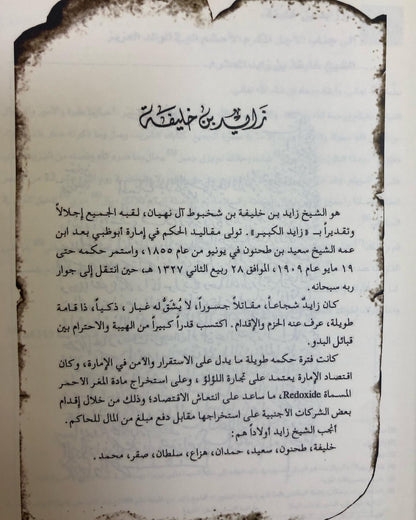 زايد بن خليفة
هو الشيخ زايد بن خليفة بن شخبوط آل نهيان، لقبه الجميع إجلالاً
وتقديراً بـ «زايد الكبير». تولى مقاليد الحكم في إمارة أبوظبي بعد ابن
عمه الشيخ سعيد بن طحنون في يونيو من عام ١٨٥٥، واستمر حكمه حتى
١٩ مايو عام ١٩٠٩، الموافق ٢٨ ربيع الثاني ١٣٢٧ هـ، حين انتقل إلى جوار
ربه سبحانه.
كان زايدٌ شجاعاً، مقاتلاً جسوراً، لا يُشقُّ له غبار، ذكياً، ذا قامة
طويلة، عرف عنه الحزم والإقدام. اكتسب قدراً كبيراً من الهيبة والاحترام بين
قبائل البدو.
كانت فترة حكمه طويلة ما يدل على الاستقرار والأمن في الإمارة، وكان
اقتصاد الإمارة يعتمد على تجارة اللؤلؤ، وعلى استخراج مادة المغر الأحمر
المسماة Redoxide، ما ساعد على انتعاش الاقتصاد؛ وذلك من خلال إقدام
بعض الشركات الأجنبية على استخراجها مقابل دفع مبلغ من المال للحاكم.
أنجب الشيخ زايد أولاداً هم:
خليفة، طحنون، سعيد، حمدان، هزاع، سلطان، صقر، محمد.